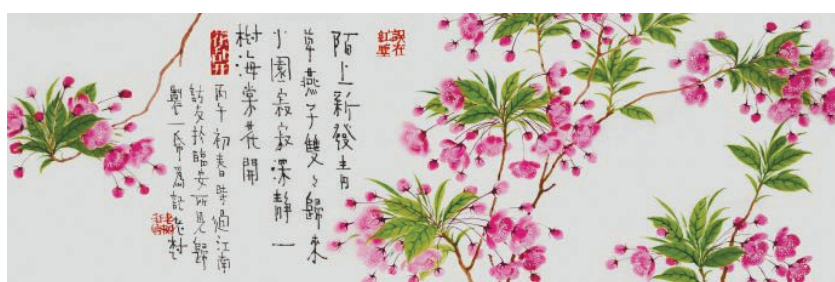 陌上新發青
草燕子雙々歸來
小園寂寂深靜一
樹海棠花開
丙午初春時過江南
訪友於臨安所見歸
製一帋為記老村